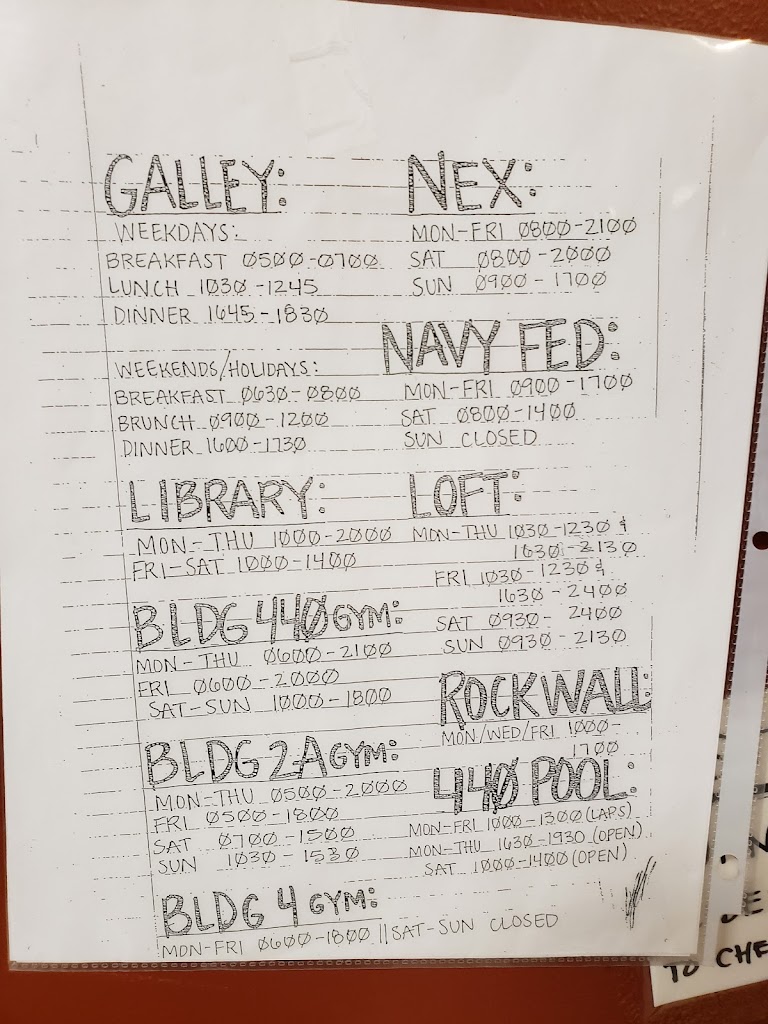 GALLEY:
WEEKDAYS:
BREAKFAST 0500-0700
LUNCH 1030-1245
DINNER 1645-1830
WEEKENDS/HOLIDAYS:
BREAKFAST 0630-0800
BRUNCH 0900-1200
DINNER 1600-1730
NEX:
MON-FRI 0800-2100
SAT 0800-2000
SUN 0900-1700
NAVY FED:
MON-FRI 0900-1700
SAT 0800-1400
SUN CLOSED
LIBRARY:
MON-THU 1000-2000
FRI-SAT 1000-1400
LOFT:
MON-THU 1030-1230 &
1630-2130
FRI 1030-1230 &
1630-2400
SAT 0930-2400
SUN 0930-2130
BLDG 440 GYM:
MON-THU 0600-2100
FRI 0600-2000
SAT-SUN 1000-1800
ROCK WALL:
MON/WED/FRI 1000-
1700
BLDG 2A GYM:
MON-THU 0500-2000
FRI 0500-1800
SAT 0700-1500
SUN 1030-1530
440 POOL:
MON-FRI 1000-1300 (LAPS)
MON-THU 1630-1930 (OPEN)
SAT 1000-1400 (OPEN)
BLDG 4 GYM:
MON-FRI 0600-1800 || SAT-SUN CLOSED
TO CHE